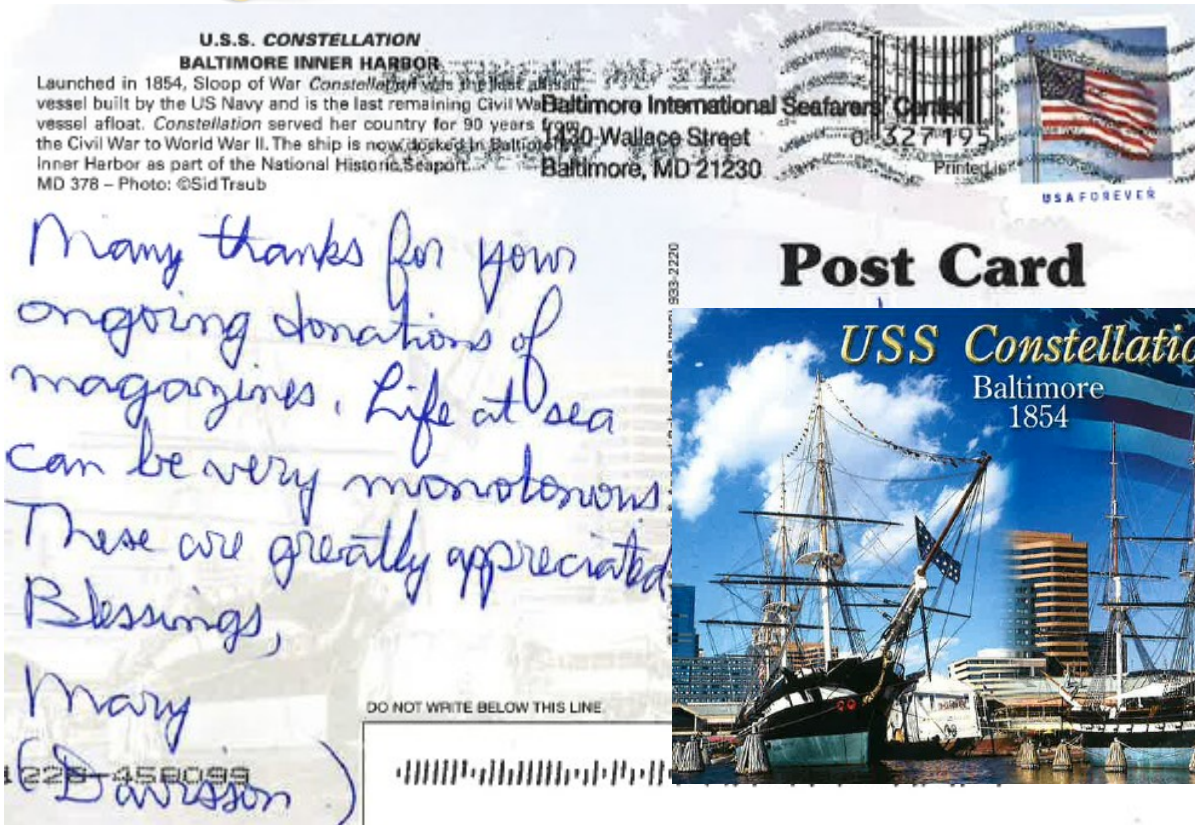 U.S.S. CONSTELLATION
BALTIMORE INNER HARBOR
Launched in 1854, Sloop of War Constellation was the last all-sail
vessel built by the US Navy and is the last remaining Civil War
vessel afloat. Constellation served her country for 90 years from
the Civil War to World War II. The ship is now docked in Baltimore's
Inner Harbor as part of the National Historic Seaport.
MD 378 – Photo: ©Sid Traub
Baltimore International Seafarers' Center
1430 Wallace Street
Baltimore, MD 21230
0 327195
Printed in
USA FOREVER
Many thanks for your
ongoing donations of
magazines. Life at sea
can be very monotonous
These are greatly appreciated
Blessings,
Mary
(Davisson)
Post Card
933-2220
USS Constellatio
Baltimore
1854
DO NOT WRITE BELOW THIS LINE.
1229-458099